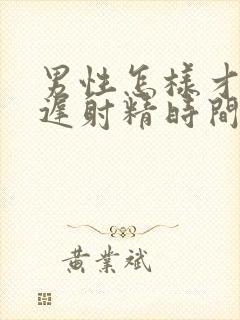 男性怎樣才
遲射精時間
黃業斌